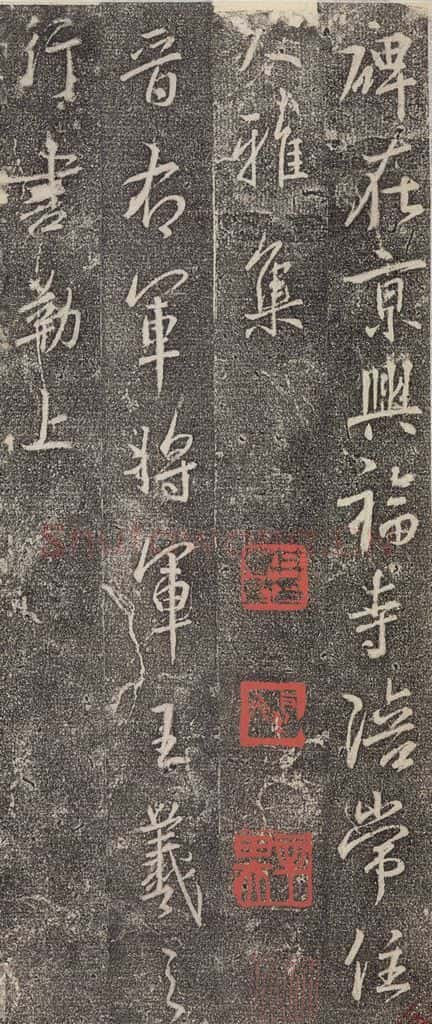 碑在京興福寺陪常住
大雅集
晋右軍将軍王羲之
行書勒上